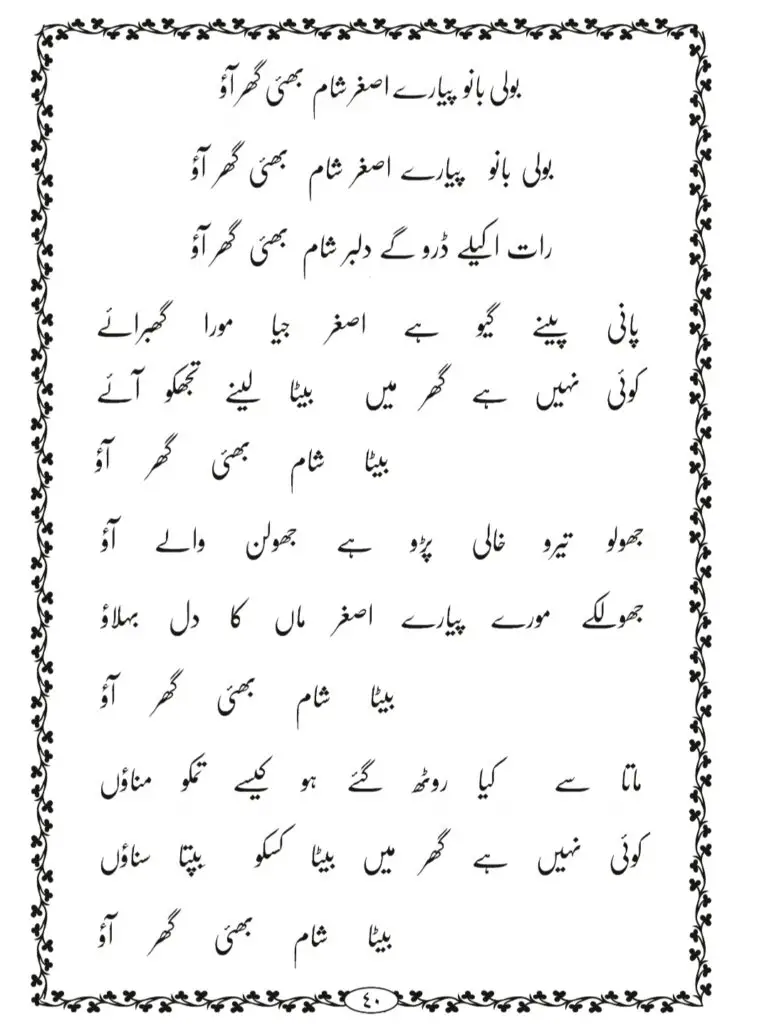 بولی بانو پیارے اصغر شام بھئی گھر آؤ
بولی بانو پیارے اصغر شام بھئی گھر آؤ
رات اکیلے ڈرو گے دلبر شام بھئی گھر آؤ
پانی پینے گیو ہے اصغر جیا مورا گھبرائے
کوئی نہیں ہے گھر میں بیٹا لینے تجھکو آئے
بیٹا شام بھئی گھر آؤ
جھولو تیرو خالی پڑو ہے جھولن والے آؤ
جھولکے مورے پیارے اصغر ماں کا دل بہلاؤ
بیٹا شام بھئی گھر آؤ
ماتا سے کیا روٹھ گئے ہو کیسے تمکو مناؤں
کوئی نہیں ہے گھر میں بیٹا کسکو بپتا سناؤں
بیٹا شام بھئی گھر آؤ
۴۰